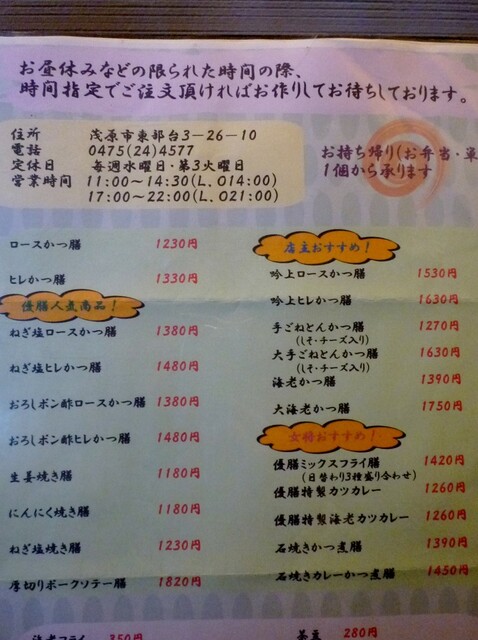 お昼休みなどの限られた時間の際、
時間指定でご注文頂ければお作りしてお待ちしております。
住所 茂原市東部台3-26-10
電話 0475(24)4577
定休日 毎週水曜日・第3火曜日
営業時間 11:00〜14:30(L.O14:00)
17:00〜22:00(L.O21:00)
お持ち帰り(お弁当・単
1個から承ります
ロースかつ膳 1230円
ヒレかつ膳 1330円
優膳人気商品!
ねぎ塩ロースかつ膳 1380円
ねぎ塩ヒレかつ膳 1480円
おろしポン酢ロースかつ膳 1380円
おろしポン酢ヒレかつ膳 1480円
生姜焼き膳 1180円
にんにく焼き膳 1180円
ねぎ塩焼き膳 1230円
厚切りポークソテー膳 1820円
店主おすすめ!
吟上ロースかつ膳 1530円
吟上ヒレかつ膳 1630円
手ごねとんかつ膳 1270円
(しそ・チーズ入り)
大手ごねとんかつ膳 1630円
(しそ・チーズ入り)
海老かつ膳 1390円
大海老かつ膳 1750円
女将おすすめ!
優膳ミックスフライ膳 1420円
(日替わり3種盛り合わせ)
優膳特製カツカレー 1260円
優膳特製海老カツカレー 1260円
石焼きかつ煮膳 1390円
石焼きカレーかつ煮膳 1450円
海老フライ 350円
280円